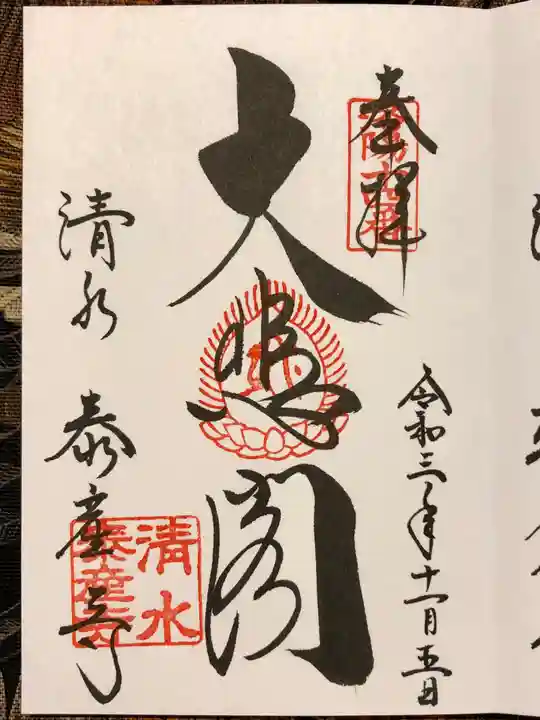 奉拝
令和三年十一月五日
大悲閣
清水 泰産寺
清水
泰産寺